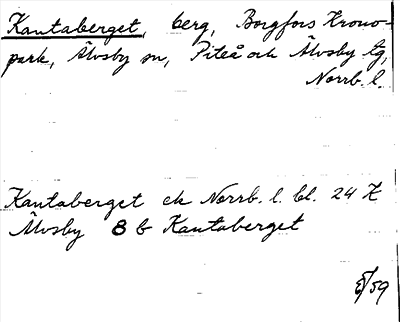 Kantaberget, berg, Borgfors Krono-
park, Älvsby sn, Piteå och Älvsby tg,
Norrb. l.
Kantaberget ek Norrb. l. bl. 24 K
Älvsby 8 b Kantaberget
/59